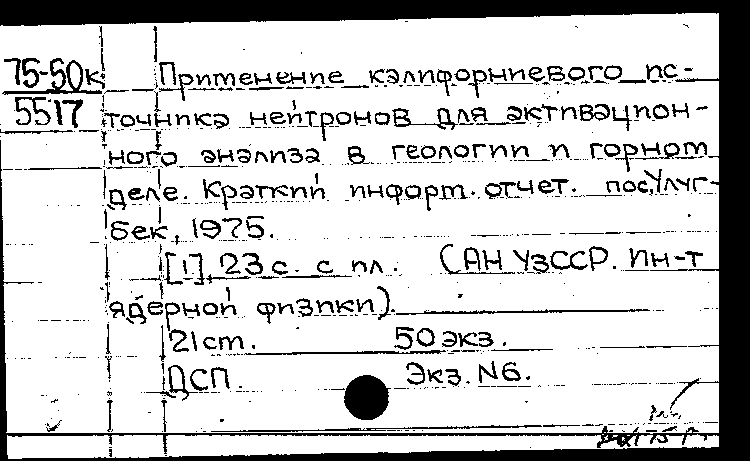 75-50к Применение калифорниевого ис-
5517 точника нейтронов для активацион-
ного анализа в геологии и горном
деле. Краткий информ. отчет. пос.Улуг-
бек, 1975.
[1], 23 с. с ил. (АН УзССР. Ин-т
ядерной физики).
21 ст. 50 экз.
ДСП. Экз. N6.
75 г.